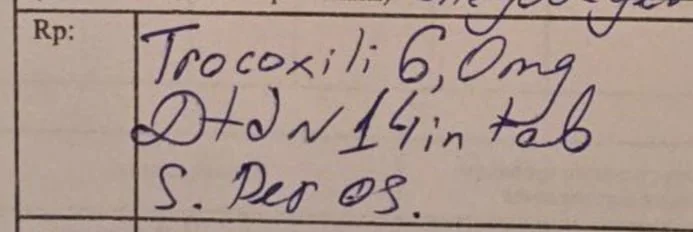 Rp:
Trocoxili 6,0mg
Dtd N 14 in tab
S. Per os.